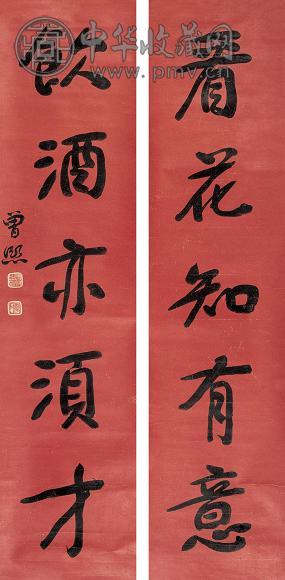 看花知有意
飲酒亦須才
曾熙
中华收藏网
www.pmv.cn